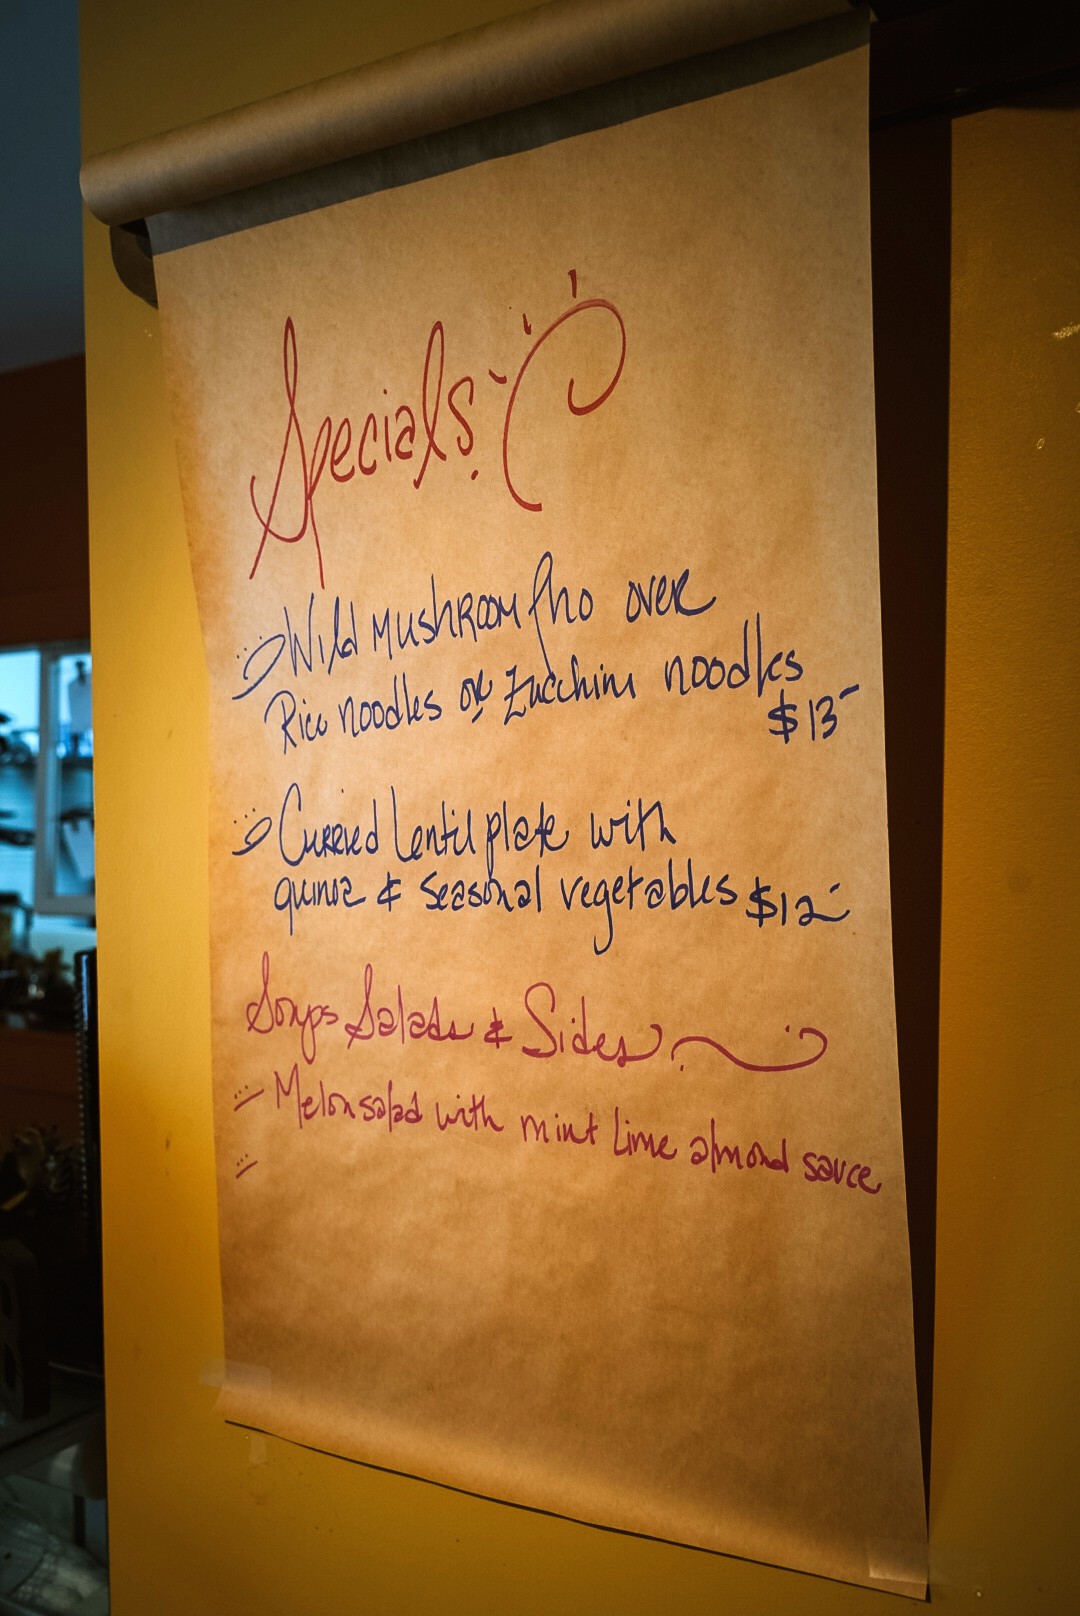 Specials
Wild Mushroom Pho over
Rice noodles or Zucchini noodles
$13
Curried Lentil plate with
quinoa & seasonal vegetables $12
Soups Salads & Sides
Melon salad with mint lime almond sauce